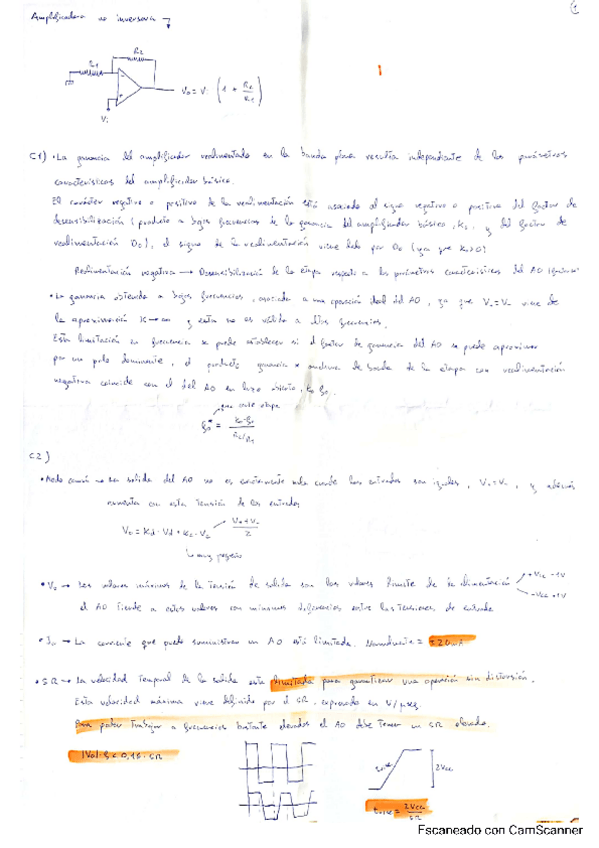 Amplificadora no inversora
R2
R1
Vi
Vo = Vi (1 + R2/R1)
C1) • La ganancia del amplificador realimentado en la banda plana resulta independiente de los parámetros
características del amplificador básico.
El carácter negativo o positivo de la realimentación está asociado al signo negativo o positivo del factor de
desensibilización (producto a bajas frecuencias de la ganancia del amplificador básico, K0, y del factor de
realimentación D0), el signo de la realimentación viene dado por D0 (ya que K0>0)
Realimentación negativa → Desensibilización de la etapa respecto a los parámetros característicos del AO
• La ganancia obtenida a bajas frecuencias, asociada a una operación ideal del AO, ya que V+=V- viene de
la aproximación K→∞ y esta no es válida a altas frecuencias.
Esta limitación en frecuencia se puede establecer si el factor de ganancia del AO se puede aproximar
por un polo dominante, el producto ganancia × anchura de banda de la etapa con realimentación
negativa coincide con el del AO en lazo abierto,
C2)
• Modo común → La salida del AO no es exactamente nula cuando las entradas son iguales, V+=V-, y además
aumenta con esta tensión de las entradas
Vo = Kd · Vd + Kc · Vc
V+ + V- / 2
muy pequeño
• Vo → Los valores máximos de la tensión de salida son los valores límite de la alimentación
+Vcc -1V
-Vcc +1V
el AO tiende a estos valores con mínimas diferencias entre las tensiones de entrada
• Io → La corriente que puede suministrar un AO está limitada. ±20mA
• SR → La velocidad temporal de la salida está limitada para garantizar una operación sin distorsión.
Esta velocidad máxima viene definida por el SR, expresado en V/μseg.
Para poder trabajar a frecuencias bastante elevadas el AO debe tener un SR elevado.
|Vo|·f < 0,16 · SR
2Vcc
= 2Vcc / SR
Escaneado con CamScanner